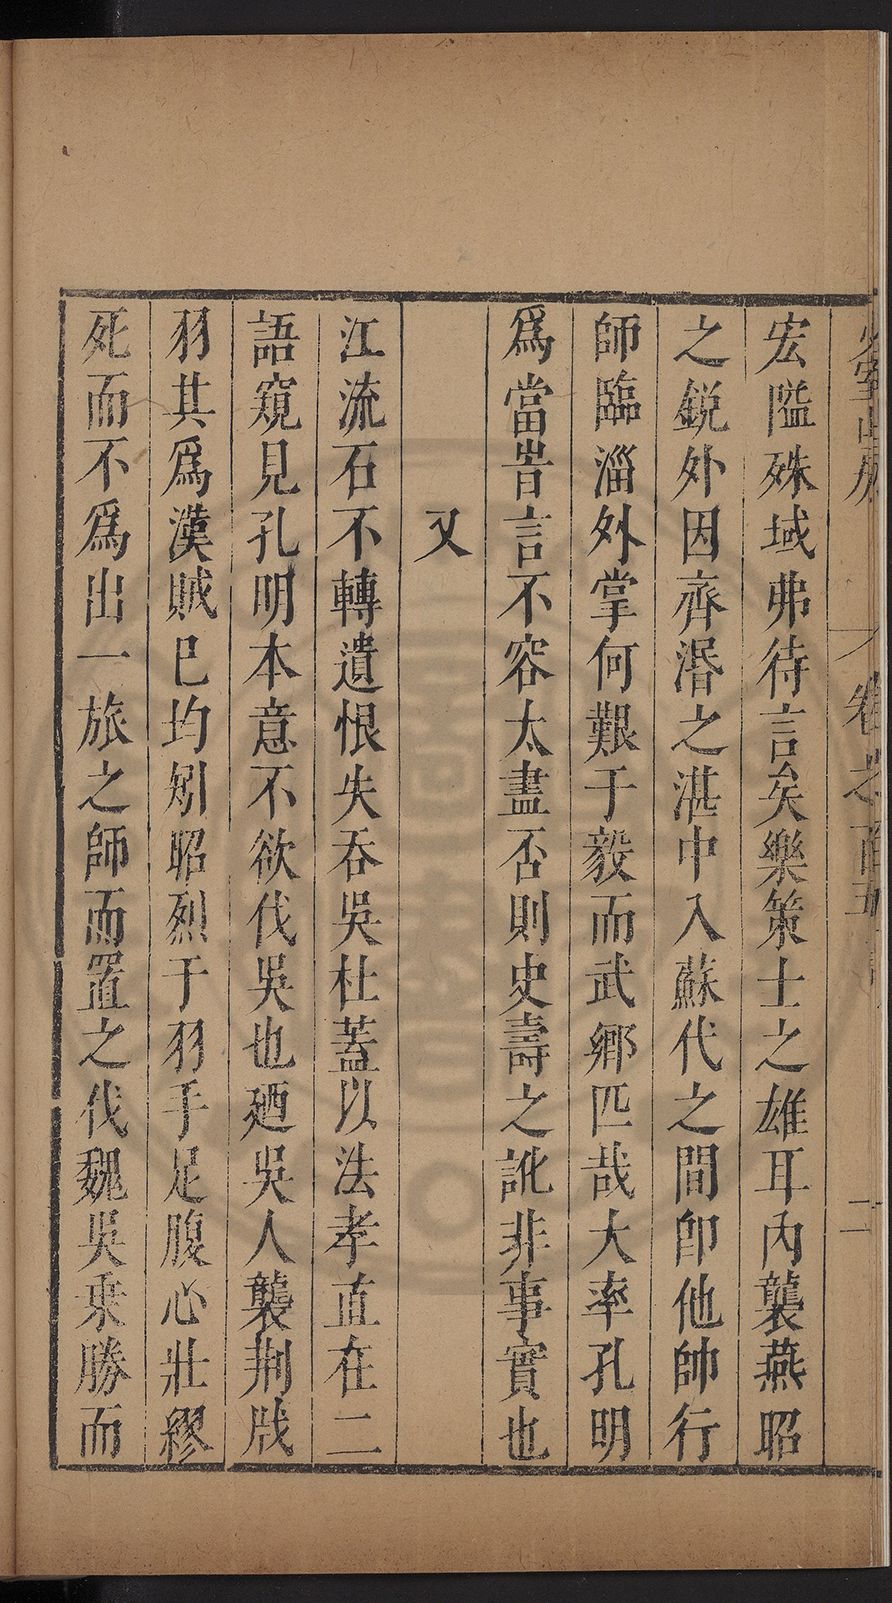 少室山房
卷之百五
二
宏隘殊域弗待言矣樂策士之雄耳內襲燕昭
之銳外因齊湣之湛中入蘇代之間卽他帥行
師臨淄外掌何艱于毅而武鄉匹哉大率孔明
爲當旹言不容太盡否則史壽之訿非事實也
又
江流石不轉遺恨失吞吳杜蓋以法孝直在二
語窺見孔明本意不欲伐吳也廼吳人襲荆戕
羽其爲漢賊巳均矧昭烈于羽手足腹心壯繆
死而不爲出一旅之師而置之伐魏吳乘勝而